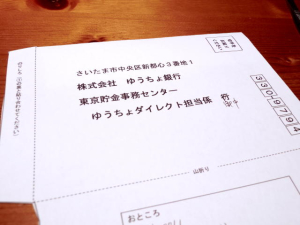 さいたま市中央区新都心３番地１
株式会社 ゆうちょ銀行
東京貯金事務センター
ゆうちょダイレクト担当係 行
3309794
山折り
おところ